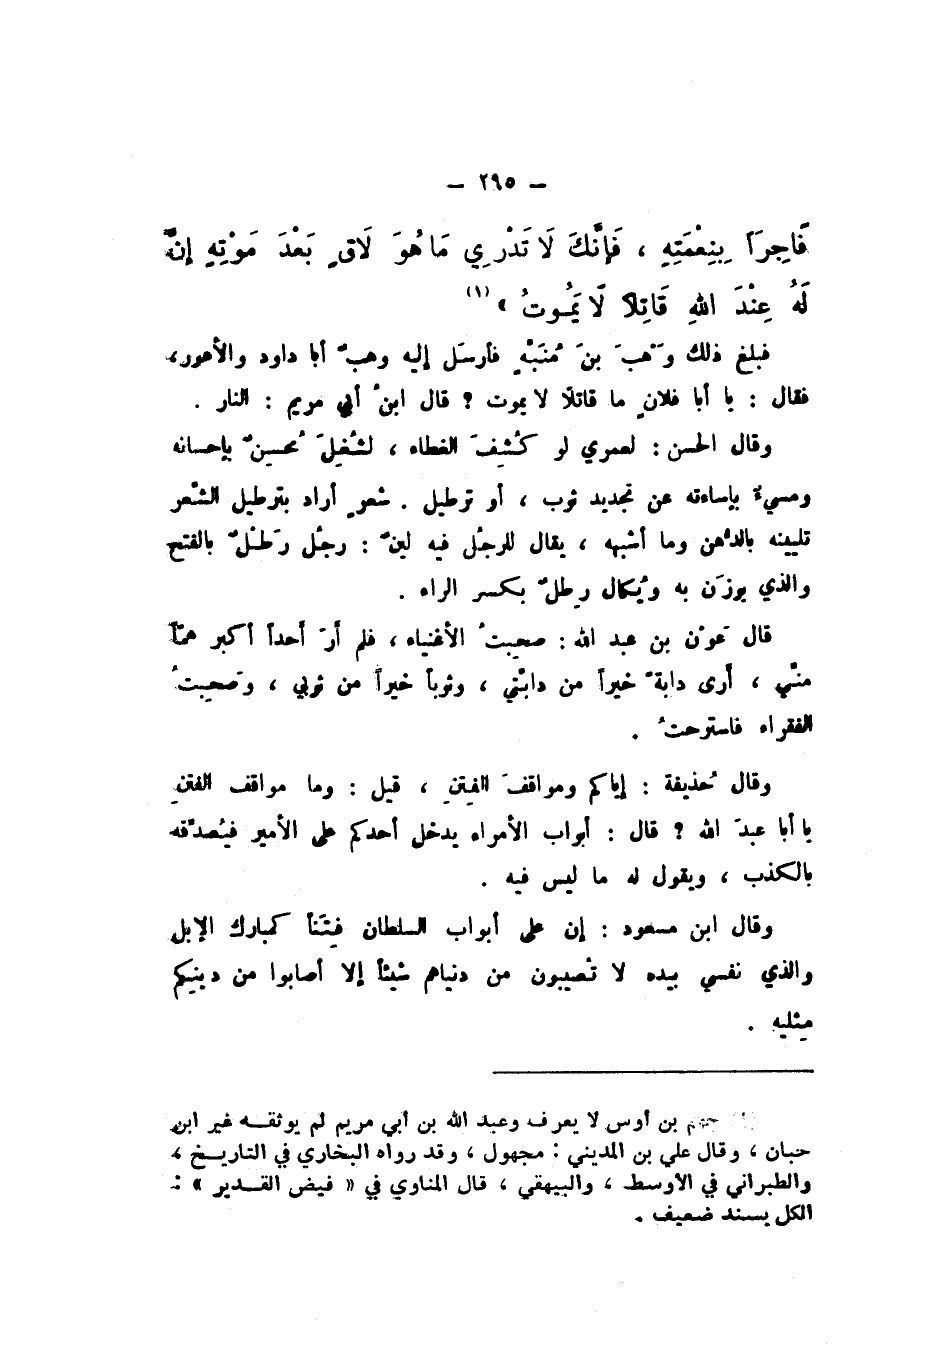 — ٢٩٥ —
فَاجِرَاً بِنِعْمَتِهِ ، فَإِنَّكَ لَا تَدْرِي مَا هُوَ لَاقٍ بَعْدَ مَوْتِهِ إِنَّ
لَهُ عِنْدَ اللهِ قَاتِلاً لَا يَمُوتُ » (١)
فبلغ ذلك وَهبَ بنَ مُنَبّهٍ فأرسَل إليه وهبٌ أبا داود والأعور،
فقال : يا أبا فلانٍ ما قاتلًا لا يموت ؟ قال ابنُ أبي مريم : النار .
وقال الحسن : لعمري لو كُشِفَ الغطاء ، لشُغِلَ مُحسِنٌ بإحسانه
ومسيءٌ بإساءته عن تجديد ثوب ، أو ترطيل . شعرٍ أراد بترطيل الشّعر
تليينه بالدُّهن وما أشبهه ، يقال للرجُل فيه لينٌ : رجُل رَطْلٌ بالفتح
والذي يوزَن به ويُكال رِطلٌ بكسر الراء .
قال عَوْن بن عبد الله : صحِبتُ الأغنياء ، فلم أرَ أحداً أكبر همّاً
منّي ، أرى دابةً خيراً من دابّتي ، وثوباً خيراً من ثوبي ، وَصحِبتُ
الفقراء فاسترحتُ .
وقال حُذيفة : إياكم ومواقفَ الفِتنِ ، قيل : وما مواقف الفتنِ
يا أبا عبدَ الله ؟ قال : أبواب الأمراء يدخل أحدكم على الأمير فيُصدّقه
بالكذب ، ويقول له ما ليس فيه .
وقال ابن مسعود : إن على أبواب السلطان فِتَناً كمبارك الإبل
والذي نفسي بيده لا تُصيبون من دنياهم شيئاً إلا أصابوا من دينِكم
مِثليهِ .
جهم بن أوس لا يعرف وعبد الله بن أبي مريم لم يوثقه غير ابن
حبان ، وقال علي بن المديني : مجهول ، وقد رواه البخاري في التاريخ ،
والطبراني في الاوسط ، والبيهقي ، قال المناوي في « فيض القدير » :
الكل بسند ضعيف .